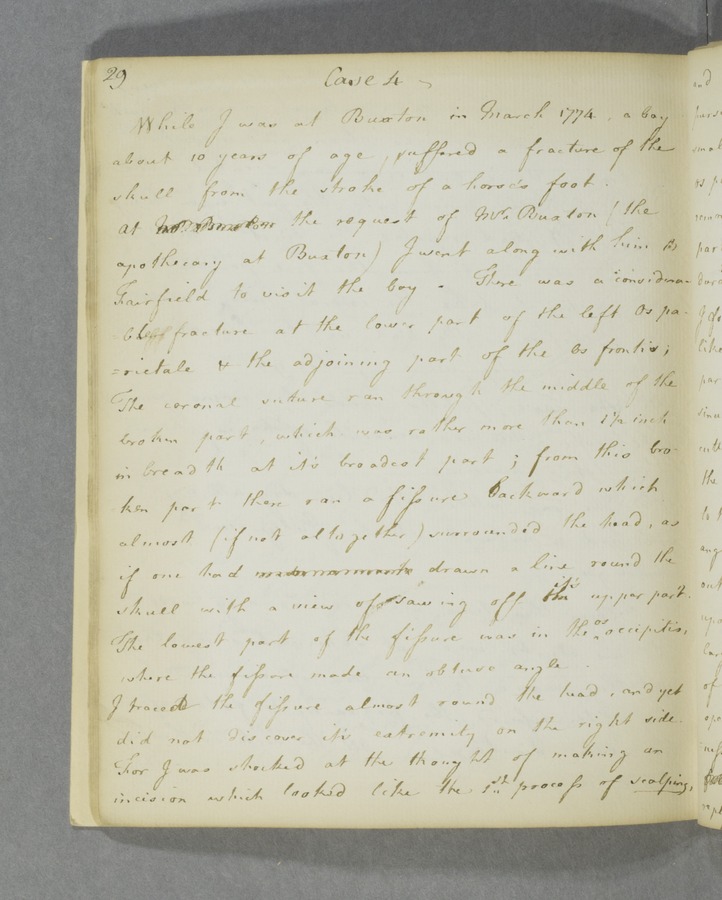 29
Case 4
While I was at Buxton in March 1774, a boy
about 10 years of age, suffered a fracture of the
skull from the stroke of a horse's foot.
At the request of Mr. Buxton (the
apothecary at Buxton) I went along with him to
Fairfield to visit the boy. There was a considera-
ble fracture at the lower part of the left Os pa-
=rietale & the adjoining part of the Os frontis;
The coronal suture ran through the middle of the
broken part, which was rather more than 1½ inch
in breadth at it's broadest part; from this bro-
ken part there ran a fissure backward which
almost (if not altogether) surrounded the head, as
if one had drawn a line round the
skull with a view of sawing off it's upper part.
The lowest part of the fissure was in the os occipitis,
where the fissure made an obtuse angle.
I traced the fissure almost round the head, and yet
did not discover it's extremity on the right side.
For I was shocked at the thought of making an
incision which looked like the 1st. process of scalping,